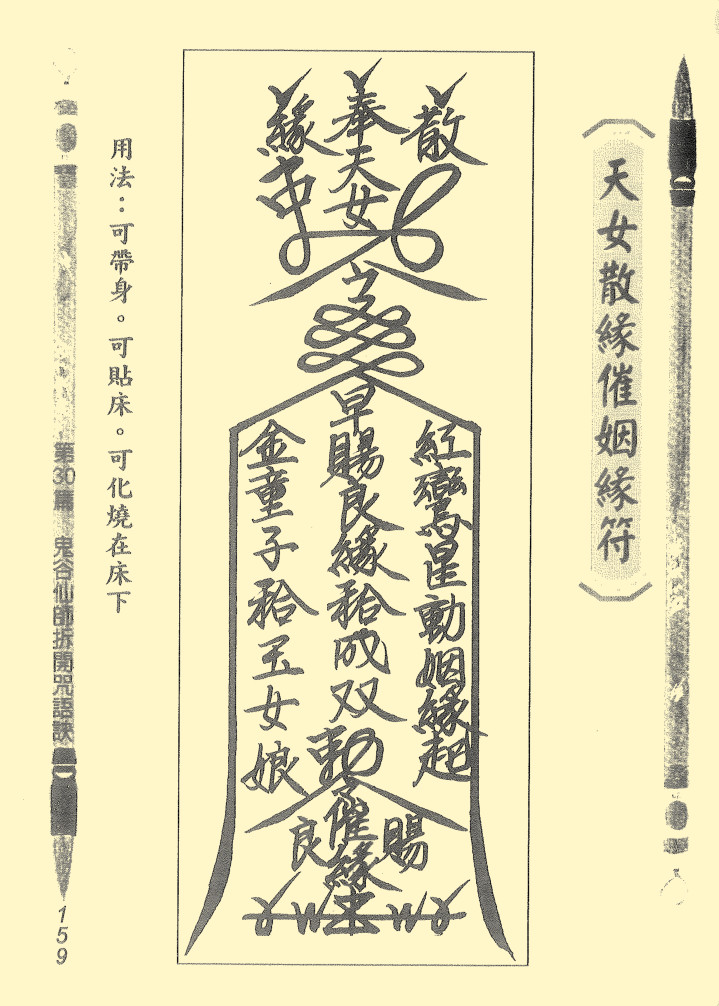 天女散緣催姻緣符
散
奉天女
緣
紅鸞星動姻緣起
早賜良緣袷成双
金童子袷玉女娘
勅
賜
催緣
良
用法：可帶身。可貼床。可化燒在床下
第30篇 鬼谷仙師拆開咒語訣
159